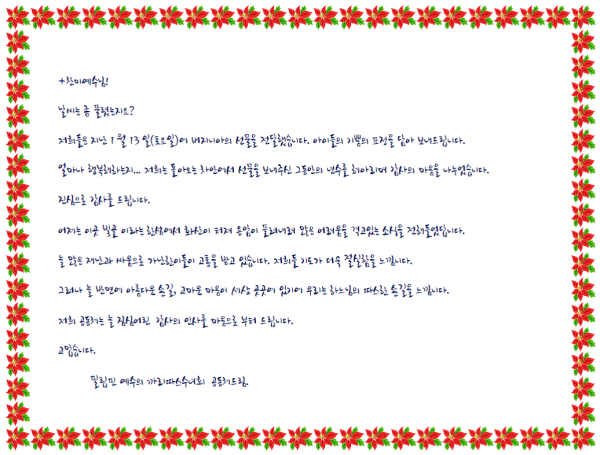 +찬미예수님!
날씨는 좀 풀렸는지요?
저희들은 지난 1월 13일(토요일)에 버지니아의 선물을 전달했습니다. 아이들의 기쁨의 표정을 담아 보내드립니다.
얼마나 행복해하는지... 저희는 돌아오는 차안에서 선물을 보내주신 그동안의 년수를 헤아리며 감사의 마음을 나누었습니다.
진심으로 감사를 드립니다.
어제는 이곳 빛콜 이라는 섬에서 화산이 터져 용암이 흘러내려 많은 어려움을 겪고있는 소식을 전해들었답니다.
늘 많은 재난과 싸움으로 가난한이들이 고통을 받고 있습니다. 저희들 기도가 더욱 절실함을 느낍니다.
그러나 늘 반면에 아름다운 손길, 고마운 마음이 세상 곳곳에 있기에 우리는 하느님의 따스한 손길을 느낍니다.
저희 공동체는 늘 진심어린 감사의 인사를 마음으로 부터 드립니다.
고맙습니다.
필립핀 예수의 까리따스수녀회 공동체드림.